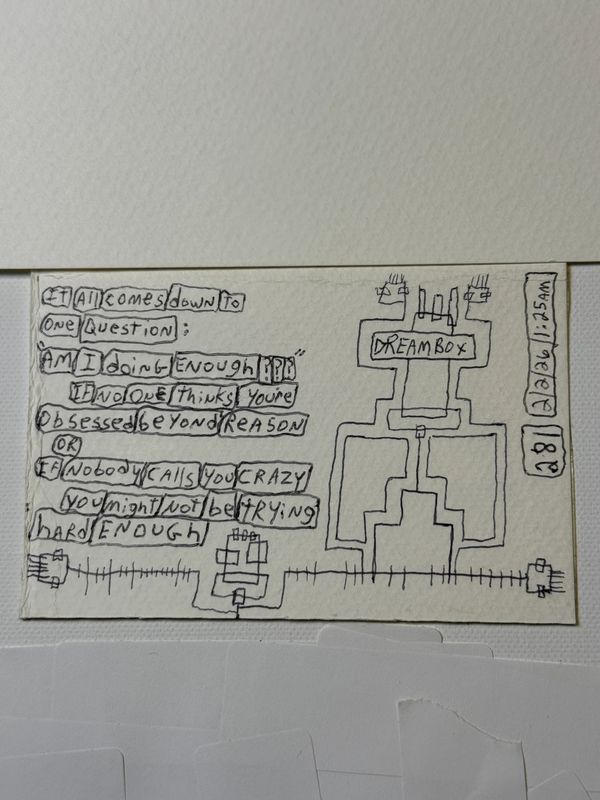 IT All comes down TO
ONE QUESTION:
"AM I doiNG ENOUGh ???"
IF NO ONE thinks YOU'RE
Obsessed beYond REASON
OR
IF NObody CALLS YOU CRAZY
YOU might NOT be TRYiNg
hARd ENOUGh
DREAMBOX
2/2/26 1:25AM
281